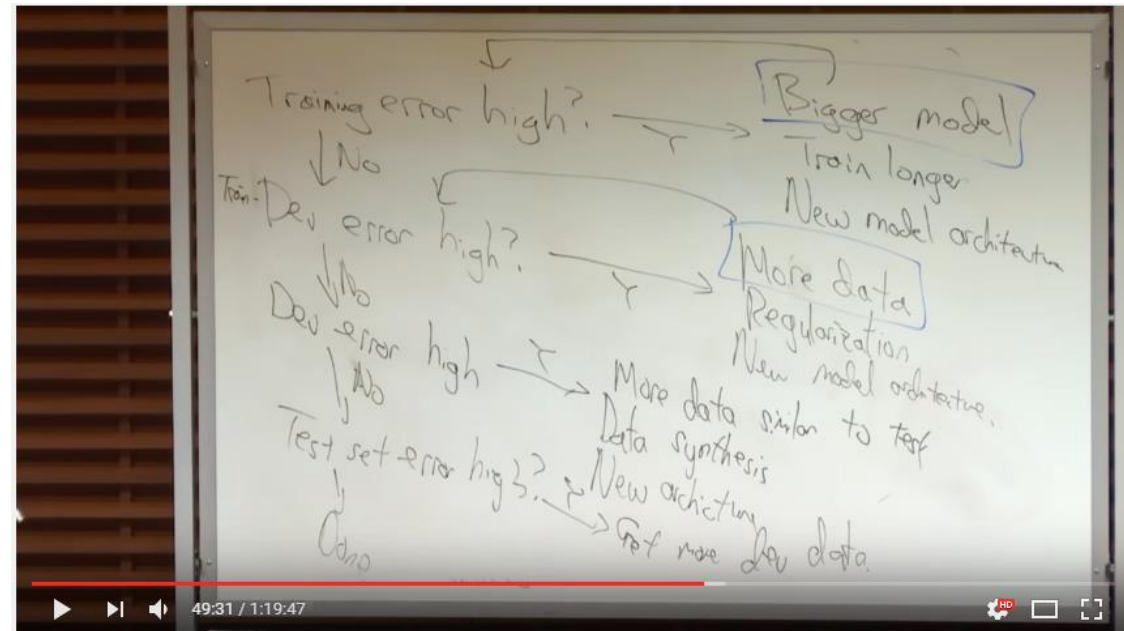 Training error high? Y Bigger model
No Train longer
New model architecture
Train-Dev error high? Y More data
No Regularization
New model architecture.
Dev error high Y More data similar to test
No Data synthesis
New
Test set error high? Y Get more dev data.
Done
49:31 / 1:19:47
HD